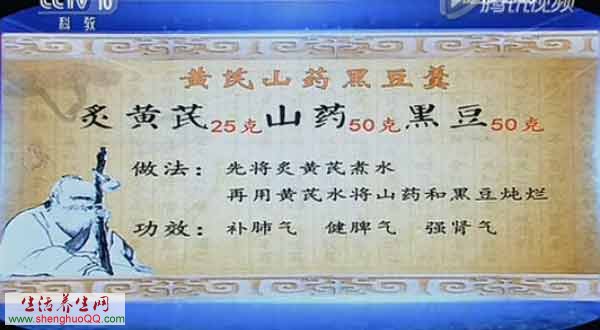 CCTV 10
科教
腾讯视频
黄芪山药黑豆羹
炙黄芪25克山药50克黑豆50克
做法：先将炙黄芪煮水
再用黄芪水将山药和黑豆炖烂
功效：补肺气 健脾气 强肾气
生活养生网
www.shenghuoQQ.com